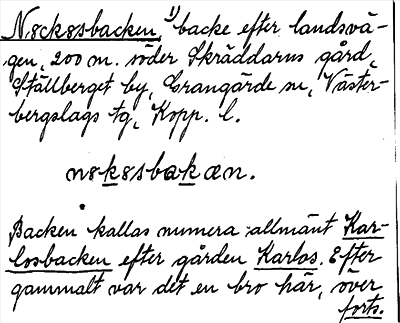 Nøckøsbacken, 1) backe efter landsvä-
gen, 200 m. söder Skräddarns gård,
Ställberget by, Grangärde sn, Väster-
bergslags tg, Kopp. l.
nøkøsbakæn.
Backen kallas numera allmänt Kar-
losbacken efter gården Karlos. Efter
gammalt var det en bro här, över
forts.